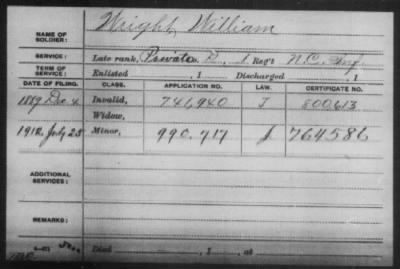 NAME OF SOLDIER: Wright, William
SERVICE: Late rank, Private. D. 1 Reg't N.C. Inf.
TERM OF SERVICE: Enlisted , 1 Discharged , 1
DATE OF FILING. CLASS. APPLICATION NO. LAW. CERTIFICATE NO.
1889 Dec 4 Invalid, 746940 J 800613
Widow,
1912. July 25 Minor, 990.717 J 764586
ADDITIONAL SERVICES:
REMARKS:
Died , 1 , at